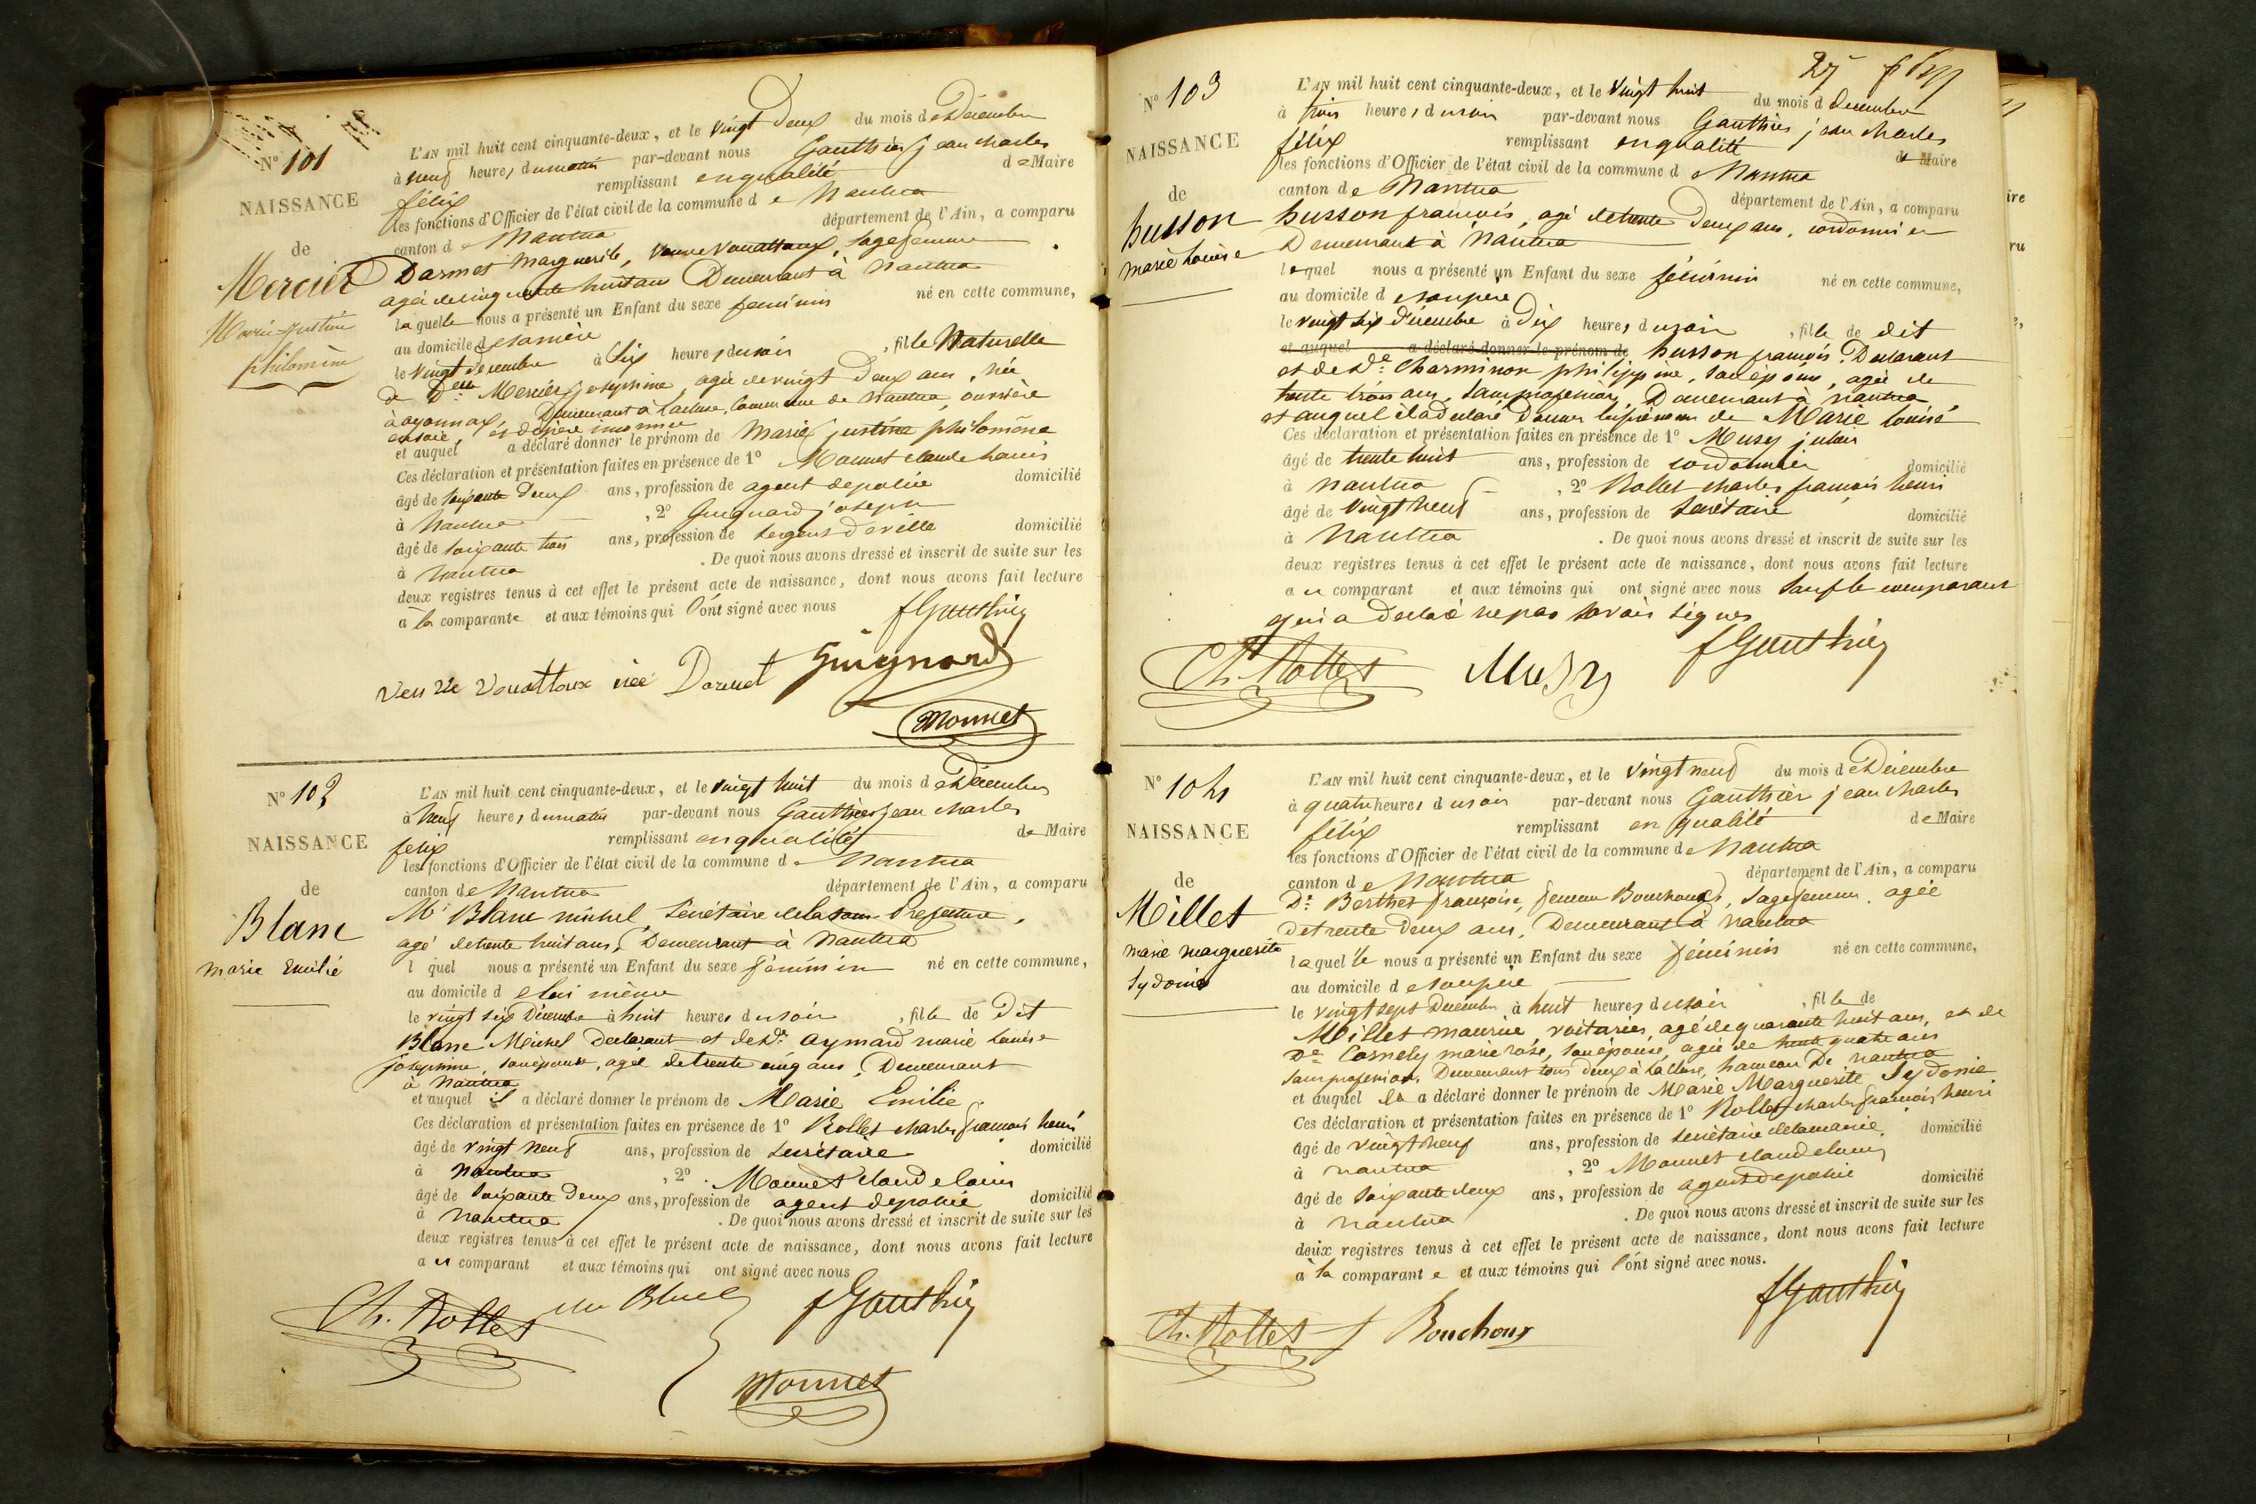 N° 101
NAISSANCE
de
Mercier
Marie Justine
philomène
L'AN mil huit cent cinquante-deux, et le vingt Deux du mois de Décembre
à neuf heures du matin par-devant nous Gauthier jean charles
félix remplissant en qualité de Maire
les fonctions d'Officier de l'état civil de la commune de Nantua
canton de Nantua département de l'Ain, a comparu
Darmet Marguerite, veuve Vouattoux, sagefemme
agée de cinquante huit ans Demeurant à Nantua
laquelle nous a présenté un Enfant du sexe féminin né en cette commune,
au domicile de sa mère
le vingt décembre à Six heures du soir, fille Naturelle
de Delle Mercier josephine, agée de vingt Deux ans, née
à oyonnax, Demeurant à Lacluse, Commune de Nantua, ouvrière
en soie, et de père inconnu
et auquel a déclaré donner le prénom de Marie justine philomène
Ces déclaration et présentation faites en présence de 1° Monnet claude Louis
âgé de soixante Deux ans, profession de agent de police domicilié
à Nantua, 2° Guignard joseph
âgé de soixante trois ans, profession de sergent de ville domicilié
à Nantua. De quoi nous avons dressé et inscrit de suite sur les
deux registres tenus à cet effet le présent acte de naissance, dont nous avons fait lecture
à la comparante et aux témoins qui l'ont signé avec nous
f Gauthier
veuve Vouattoux née Darmet Guignard
Monnet
N° 102
NAISSANCE
de
Blanc
marie Emilie
L'AN mil huit cent cinquante-deux, et le vingt huit du mois de Décembre
à neuf heures du matin par-devant nous Gauthier jean charles
felix remplissant en qualité de Maire
les fonctions d'Officier de l'état civil de la commune de Nantua
canton de Nantua département de l'Ain, a comparu
Mr Blanc michel Secrétaire de la sous-Prefecture,
agé de trente huit ans, Demeurant à Nantua
l quel nous a présenté un Enfant du sexe féminin né en cette commune,
au domicile de lui même
le vingt six Décembre à huit heures du soir, fille de Dit
Blanc Michel declarant et de De Aymard marie Louise
josephine, son épouse, agée de trente cinq ans, Demeurant
à Nantua
et auquel il a déclaré donner le prénom de Marie Emilie
Ces déclaration et présentation faites en présence de 1° Rollet charles françois henri
âgé de vingt neuf ans, profession de secrétaire domicilié
à Nantua, 2° Monnet claude louis
âgé de soixante Deux ans, profession de agent de police domicilié
à Nantua. De quoi nous avons dressé et inscrit de suite sur les
deux registres tenus à cet effet le présent acte de naissance, dont nous avons fait lecture
au comparant et aux témoins qui ont signé avec nous
Ch. Rollet Blanc f Gauthier
Monnet
27
N° 103
NAISSANCE
de
husson
marie Louise
L'AN mil huit cent cinquante-deux, et le vingt huit du mois de decembre
à trois heures du soir par-devant nous Gauthier jean charles
félix remplissant en qualité de Maire
les fonctions d'Officier de l'état civil de la commune de Nantua
canton de Nantua département de l'Ain, a comparu
husson françois, agé de trente Deux ans, cordonnier
Demeurant à Nantua
lequel nous a présenté un Enfant du sexe féminin né en cette commune,
au domicile de son père
le vingt six décembre à Dix heures du soir, fille de dit
et auquel a déclaré donner le prénom de husson françois Declarant
et de De Charminon philippine, son épouse, agée de
trente trois ans, sans profession, Demeurant à Nantua
et auquel il a declaré donner les prénoms de Marie Louise
Ces déclaration et présentation faites en présence de 1° Musy julien
âgé de trente huit ans, profession de cordonnier domicilié
à Nantua, 2° Rollet charles françois henri
âgé de vingt neuf ans, profession de secrétaire domicilié
à Nantua. De quoi nous avons dressé et inscrit de suite sur les
deux registres tenus à cet effet le présent acte de naissance, dont nous avons fait lecture
au comparant et aux témoins qui ont signé avec nous sauf le comparant
qui a declaré ne pas savoir signer
Ch. Rollet Musy f Gauthier
N° 104
NAISSANCE
de
Millet
marie marguerite
Sydonie
L'AN mil huit cent cinquante-deux, et le vingt neuf du mois de Décembre
à quatre heures du soir par-devant nous Gauthier jean charles
félix remplissant en qualité de Maire
les fonctions d'Officier de l'état civil de la commune de Nantua
canton de Nantua département de l'Ain, a comparu
De Berthet françoise, femme Bouchoux, sagefemme, agée
de trente deux ans, Demeurant à Nantua
laquelle nous a présenté un Enfant du sexe féminin né en cette commune,
au domicile de son père
le vingt sept Decembre à huit heures du soir, fille de
Millet maurice, voiturier, agé de quarante huit ans, et de
De Cornely marie rose, son épouse, agée de trente quatre ans
sans profession, Demeurant tous deux à Lacluse, hameau De Nantua
et auquel ll a déclaré donner le prénom de Marie Marguerite Sydonie
Ces déclaration et présentation faites en présence de 1° Rollet charles françois henri
âgé de vingt neuf ans, profession de secrétaire de la mairie domicilié
à nantua, 2° Monnet claude louis
âgé de soixante deux ans, profession de agent de police domicilié
à Nantua. De quoi nous avons dressé et inscrit de suite sur les
deux registres tenus à cet effet le présent acte de naissance, dont nous avons fait lecture
à la comparante et aux témoins qui l'ont signé avec nous.
f Gauthier
Ch. Rollet f Bouchoux